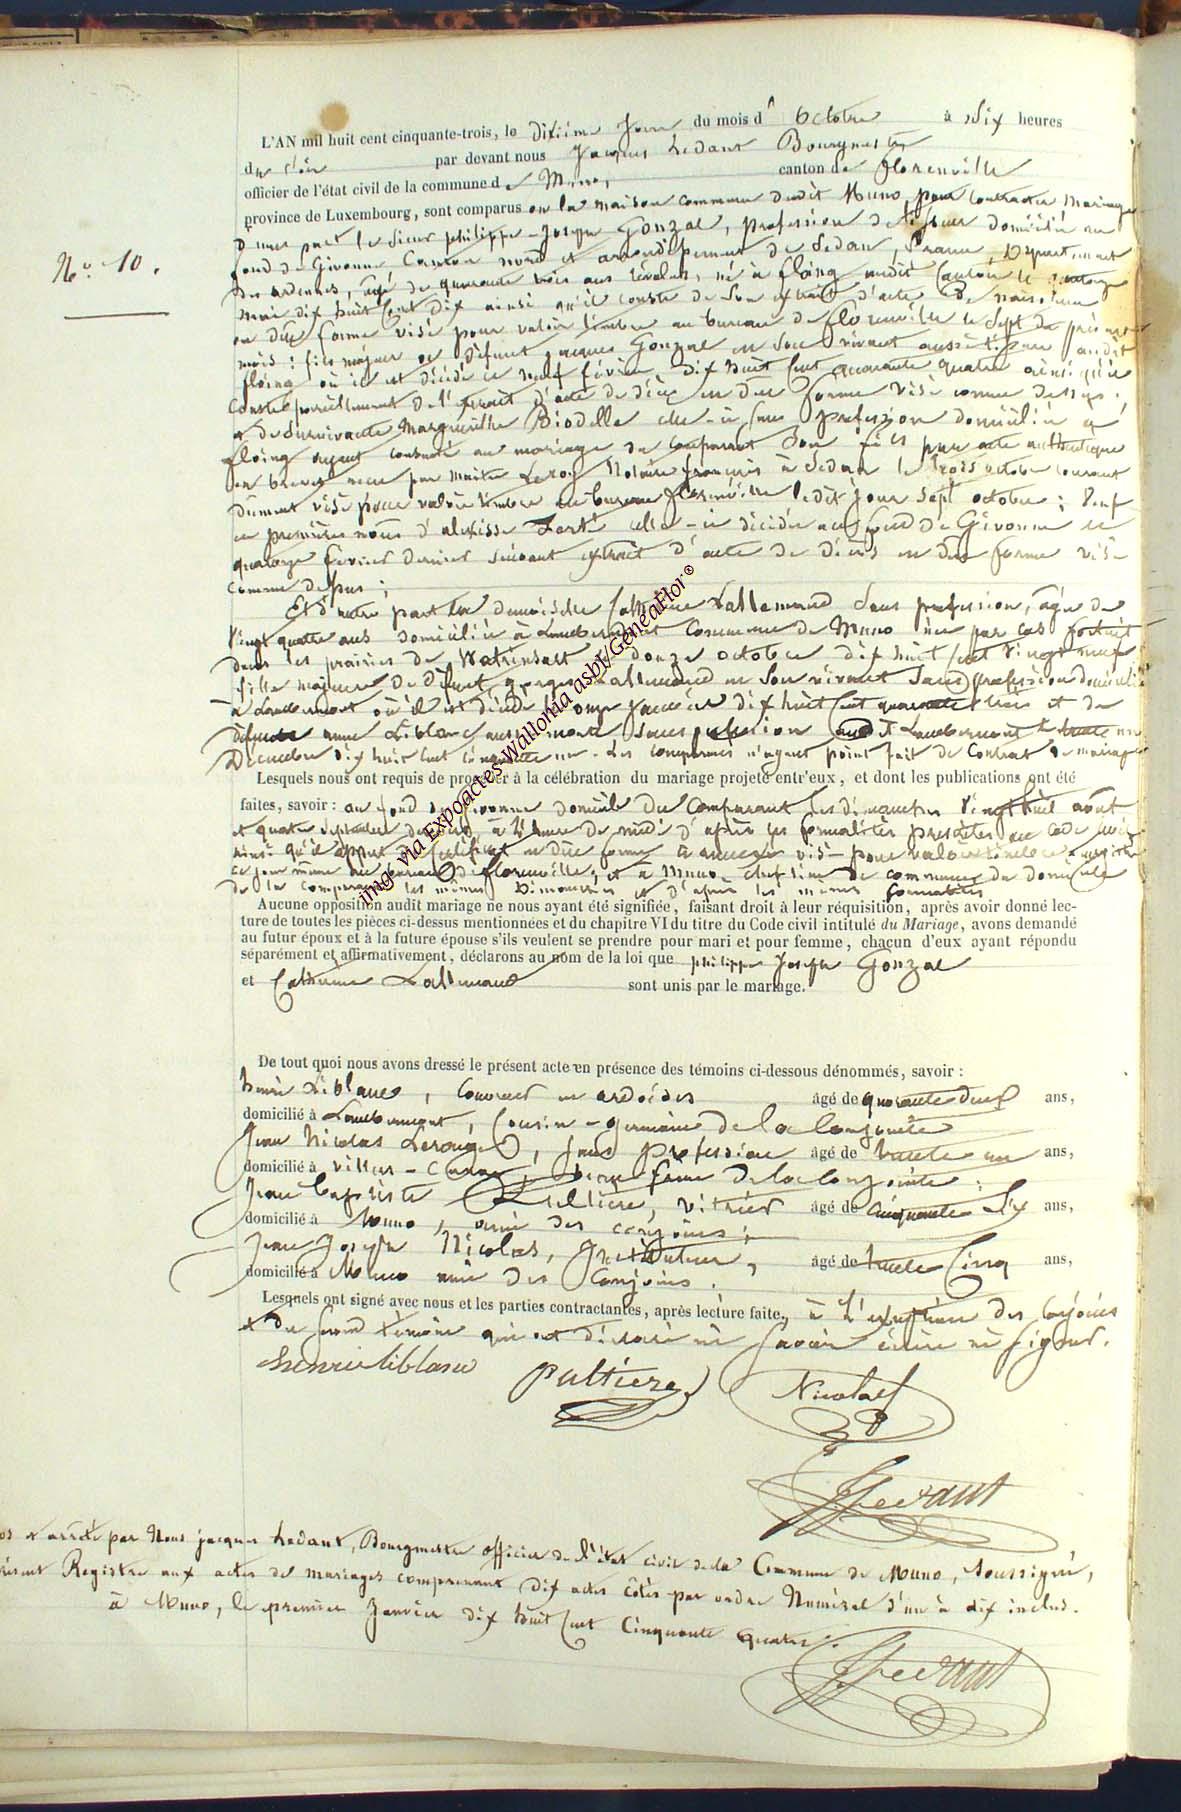 L'AN mil huit cent cinquante-trois, le dixième jour du mois d' Octobre à six heures
du soir par devant nous Jacques Ledant Bourgmestre
officier de l'état civil de la commune de Muno, canton de Florenville
province de Luxembourg, sont comparus en la maison commune dudit Muno, pour contracter mariage
d'une part le sieur philippe-Joseph Gonzal, profession de tisseur domicilié au
fond de Givonne Canton nord et arrondissement de Sedan, France, Département
N.° 10.
des ardennes, agé de quarante trois ans révolus, né à floing audit Canton le quatorze
mai dix huit Cent dix ainsi qu'il conste de son extrait d'acte de naissance
en due forme visé pour valoir timbre au bureau de florenville le sept du présent
mois; fils majeur de défunt jacques Gonzal en son vivant aussi audit
floing où il est décédé le neuf février dix huit Cent quarante quatre ainsi qu'il
conste pareillement de l'extrait d'acte de décès en due forme visé comme dessus.
et de survivante Marguerithe Biodelle celle-ci sans profession domiciliée à
floing ayant consenti au mariage du comparant son fils par acte authentique
en brevet reçu par maitre Leroy Notaire français à Sedan le trois octobre courant
dûment visé pour valoir timbre au bureau florenville ledit jour sept octobre; Veuf
en premières noces d'alexisse celle-ci décédée au fond de Givonne le
quatorze fevrier dernier suivant extrait d'acte de décès en due forme visé
comme dessus;
Et d'autre part la demoiselle Catherine Lallemand sans profession, agée de
Vingt quatre ans domiciliée à Lambermont Commune de Muno née par cas fortuit
dans les prairies de Watrinsart le douze octobre dix huit Cent Vingt neuf
fille majeure de défunt georges Lallemand en son vivant sans profession domicilié
à Lambermont où il est décédé le onze Janvier dix huit Cent quarante trois et de
défunte anne Leblanc aussi morte sans profession audit Lambermont le trente un
Décembre dix huit Cent Cinquante un. Les comparants n'ayant point fait de Contrat de mariage
Lesquels nous ont requis de procéder à la célébration du mariage projeté entr'eux, et dont les publications ont été
faites, savoir : au fond de Givonne domicile du Comparant les dimanches Vingt huit août
et quatre Septembre derniers, à l'heure de midi d'après les formalités prescrites au Code civil
ainsi qu'il appert du Certificat en due forme annexé visé pour valoir timbre et enregistré
ce jour même au bureau de florenville; et à Muno chef lieu de commune du domicile
de la Comparante les mêmes Dimanches et d'après les mêmes formalités
Aucune opposition audit mariage ne nous ayant été signifiée, faisant droit à leur réquisition, après avoir donné lec-
ture de toutes les pièces ci-dessus mentionnées et du chapitre VI du titre du Code civil intitulé du Mariage, avons demandé
au futur époux et à la future épouse s'ils veulent se prendre pour mari et pour femme, chacun d'eux ayant répondu
séparément et affirmativement, déclarons au nom de la loi que philippe Joseph Gonzal
et Catherine Lallemand sont unis par le mariage.
De tout quoi nous avons dressé le présent acte en présence des témoins ci-dessous dénommés, savoir :
henri Leblanc, Couvreur en ardoises âgé de quarante deux ans,
domicilié à Lambermont, Cousin-germain de la Conjointe
Jean Nicolas Lerouge, sans profession âgé de trente un ans,
domicilié à Villers-, beau frère de la Conjointe;
Jean baptiste Pultiere, vitrier âgé de cinquante six ans,
domicilié à Muno, ami des conjoints;
Jean Joseph Nicolas, instituteur, âgé de trente Cinq ans,
domicilié à Muno ami des Conjoints.
Lesquels ont signé avec nous et les parties contractantes, après lecture faite, à l'exception des Conjoints
et du second témoin qui ont déclaré ne savoir écrire ni signer.
henri leblanc Pultiere Nicolas
JLedant
et arrêté par Nous jacques Ledant, Bourgmestre officier de l'état civil de la Commune de Muno, Soussigné,
présent Registre aux actes de mariages comprenant dix actes côtés par ordre Numéral d'un à dix inclus.
à Muno, le premier Janvier dix huit Cent Cinquante Quatre.
JLedant
img. via Expoactes Wallonia asbl/GeneaFlor®